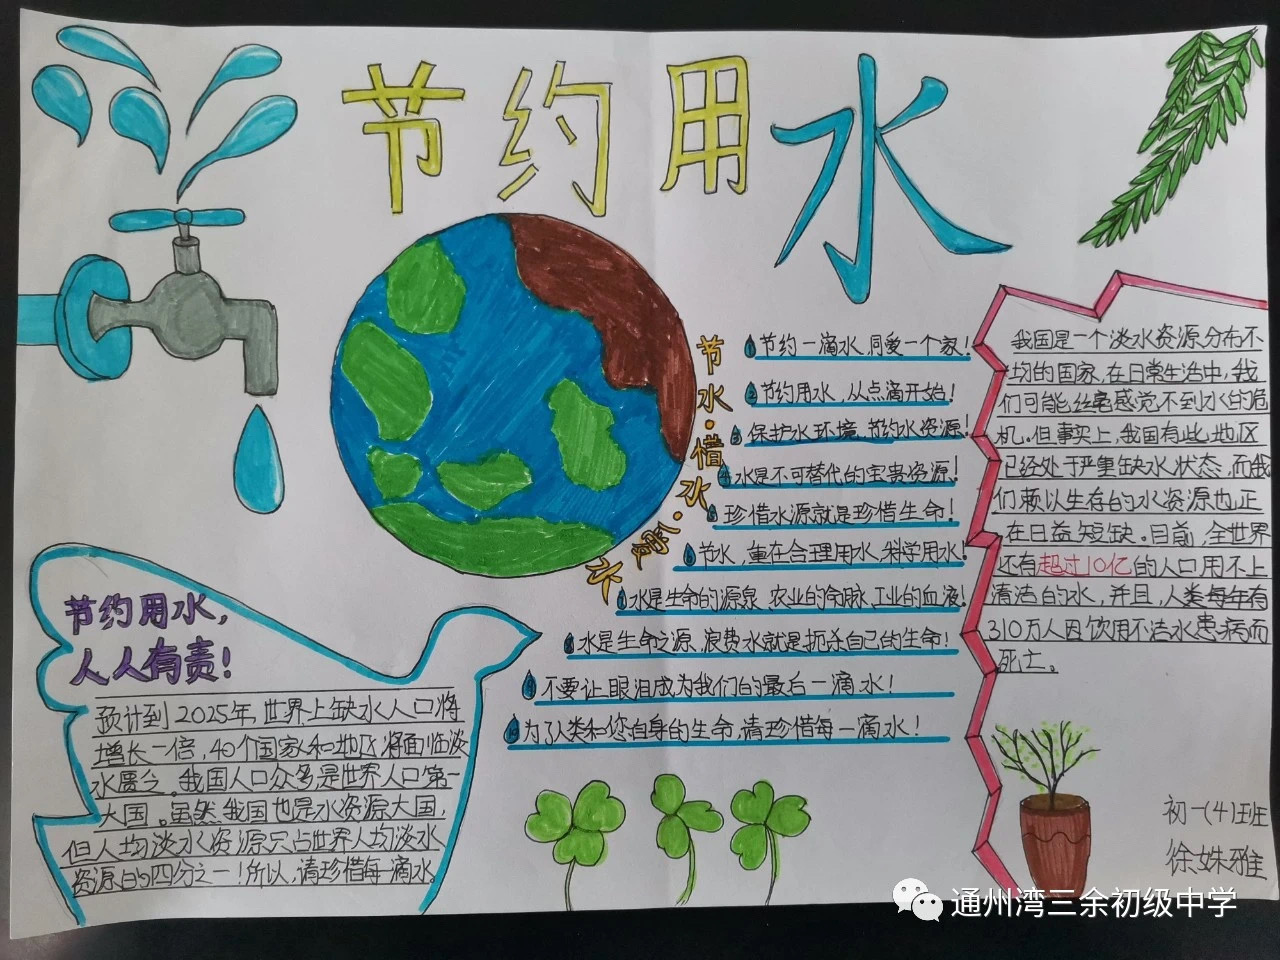 节约用水
节水·惜水·爱水
1 节约一滴水，同爱一个家！
2 节约用水，从点滴开始！
3 保护水环境，节约水资源！
4 水是不可替代的宝贵资源！
5 珍惜水源就是珍惜生命！
6 节水，重在合理用水，科学用水！
7 水是生命的源泉、农业的命脉、工业的血液！
8 水是生命之源，浪费水就是扼杀自己的生命！
9 不要让眼泪成为我们的最后一滴水！
10 为了人类和您自身的生命，请珍惜每一滴水！
我国是一个淡水资源分布不
均的国家，在日常生活中，我
们可能丝毫感觉不到水的危
机。但事实上，我国有些地区
已经处于严重缺水状态，而我
们赖以生存的水资源也正
在日益短缺。目前，全世界
还有超过10亿的人口用不上
清洁的水，并且，人类每年有
310万人因饮用不洁水患病而
死亡。
节约用水，
人人有责！
预计到2025年，世界上缺水人口将
增长一倍，40个国家和地区将面临淡
水匮乏。我国人口众多，是世界人口第一
大国。虽然我国也是水资源大国，
但人均淡水资源只占世界人均淡水
资源的四分之一！所以，请珍惜每一滴水。
初一(4)班
徐姝雅
通州湾三余初级中学